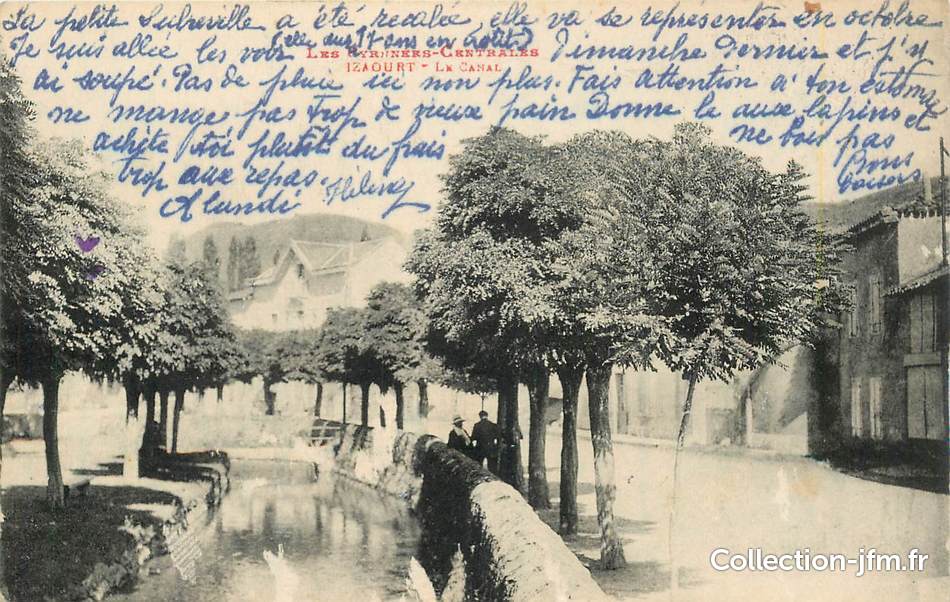 La petite Subreville a été recalée, elle va se representer en octobre
Je suis allée les voir (elle aura 17 ans en août) Dimanche Dernier et j'y
LES PYRÉNÉES-CENTRALES
IZAOURT - LE CANAL
ai soupé. Pas de pluie ici non plus. Fais attention à ton estomac
ne mange pas trop de vieux pain Donne le aux lapins et
achète toi plutôt du frais ne bois pas
trop aux repas. Bons
Alundi baisers
Collection-jfm.fr